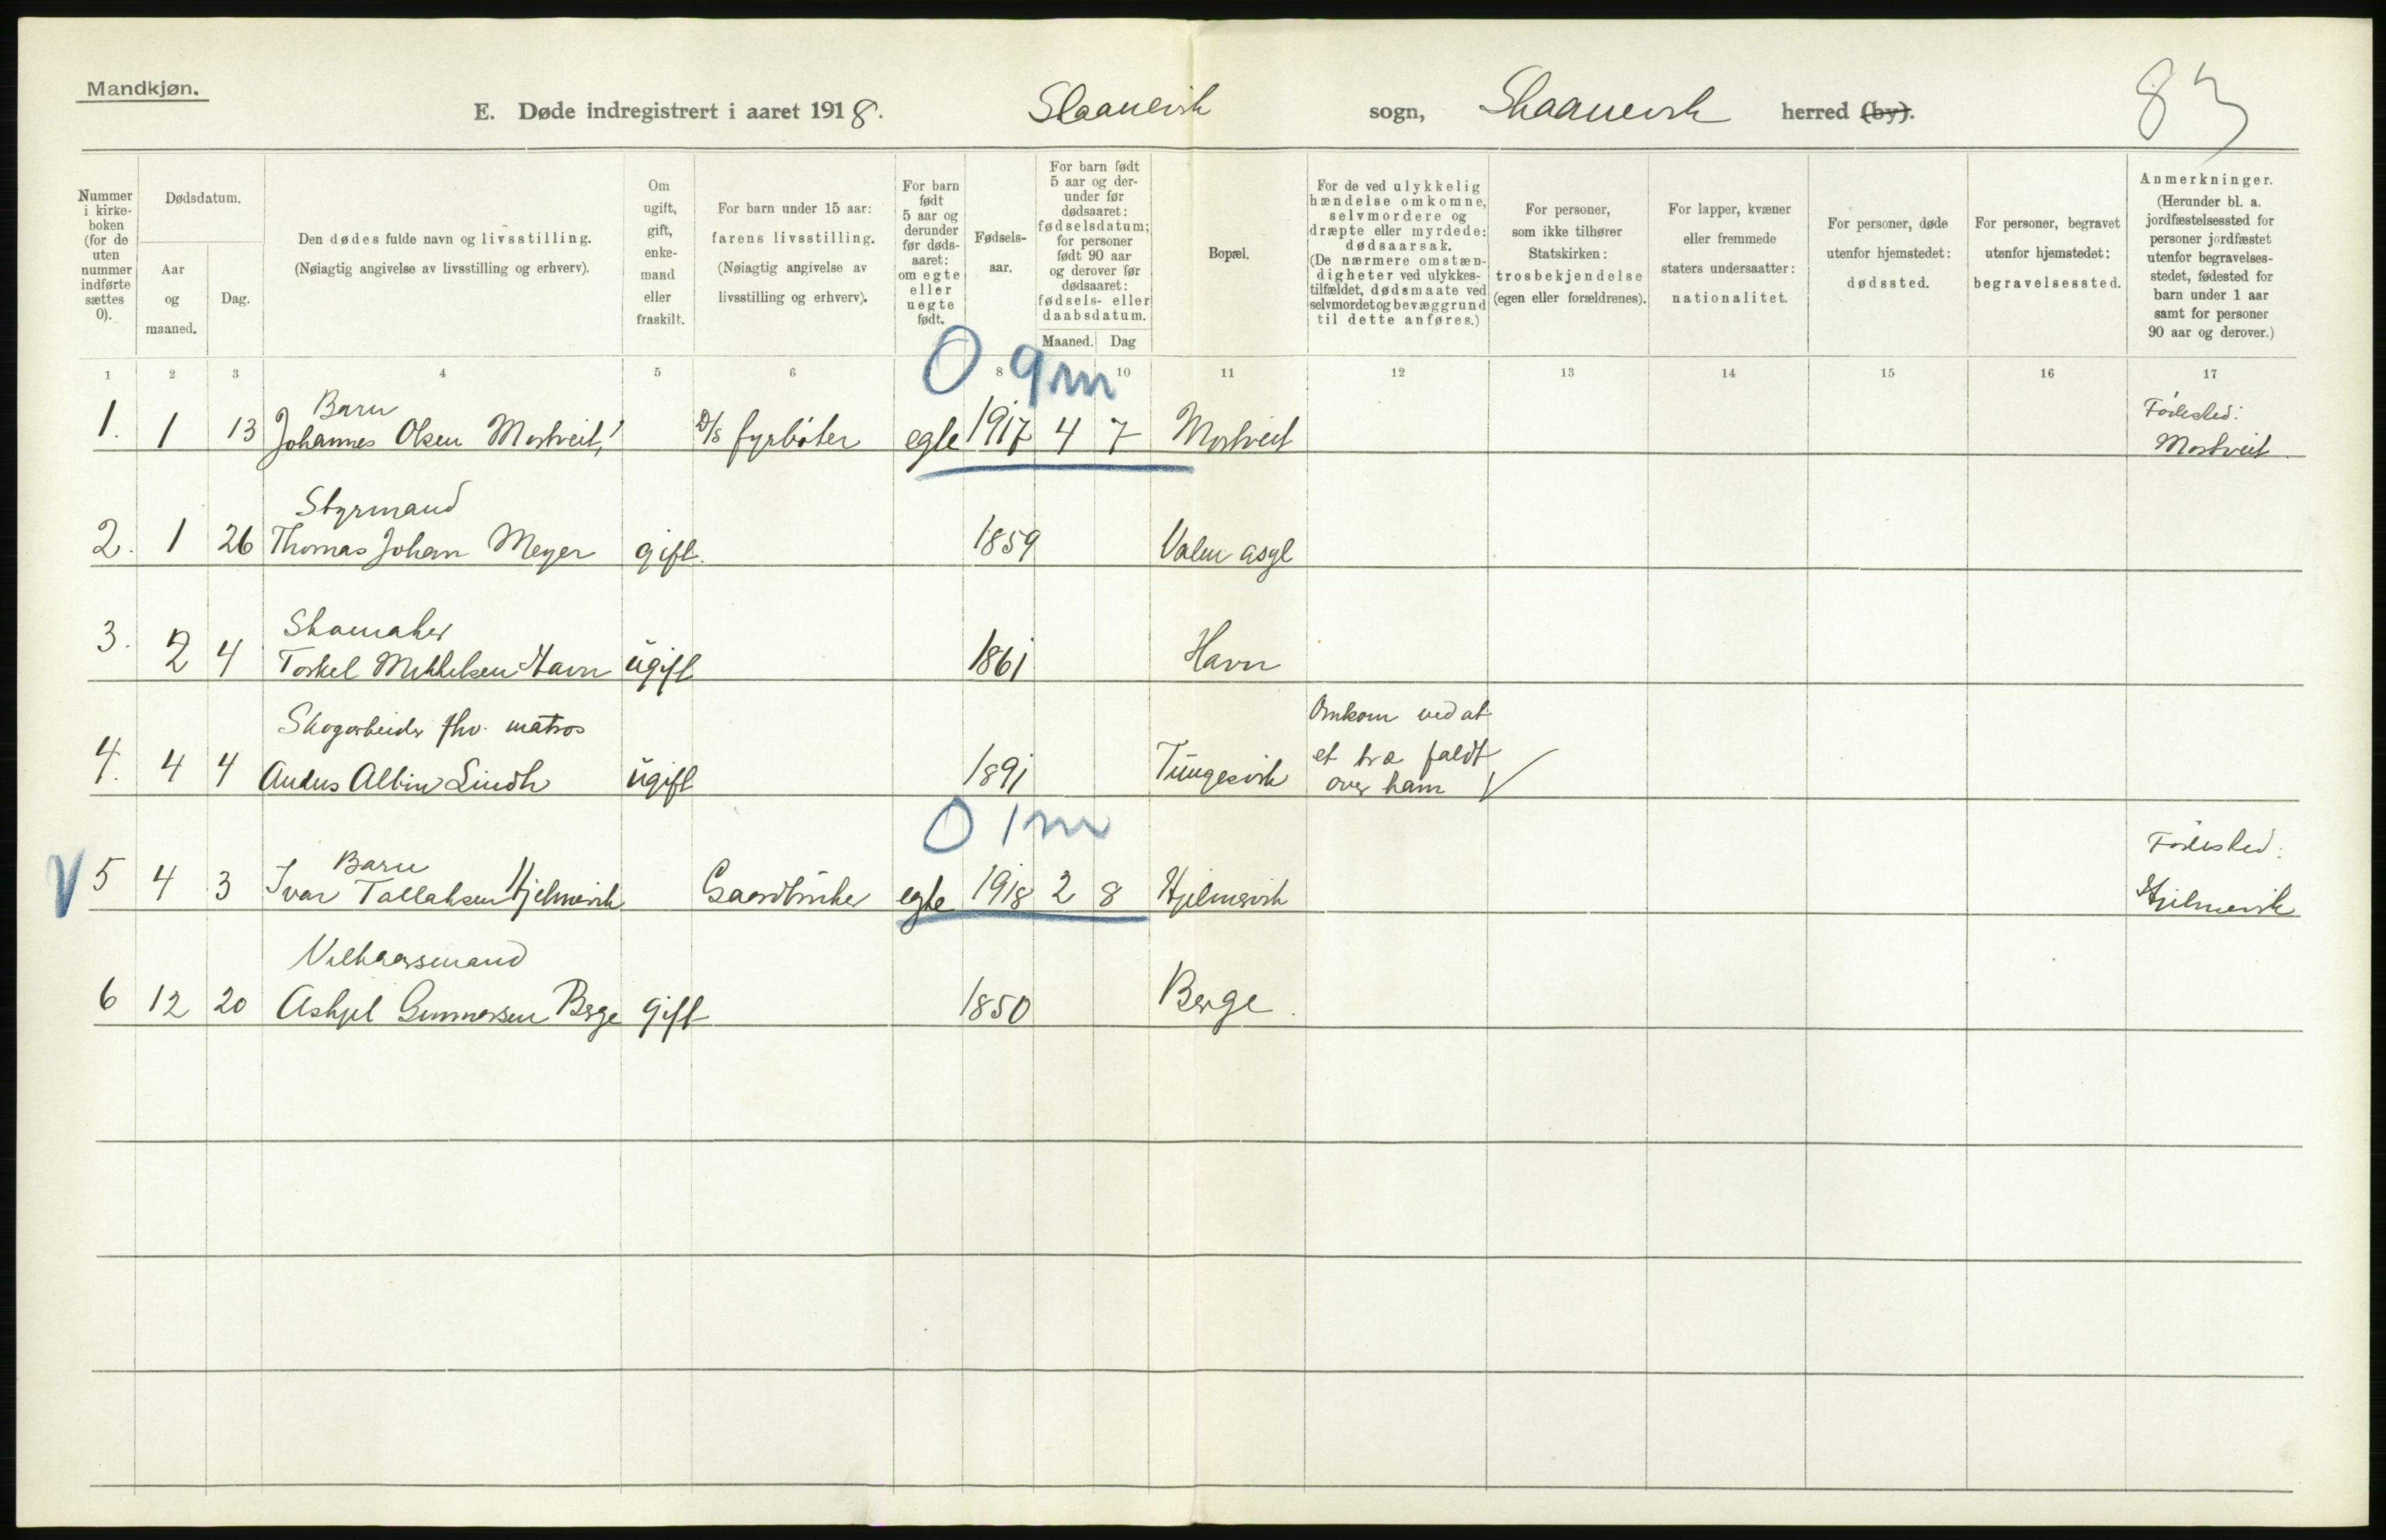 Mandkjøn.
E. Døde indregistrert i aaret 1918. Skaanevik sogn, Skaanevik herred (by).
83
Nummer i kirkeboken (for de uten nummer indførte sættes 0).
Dødsdatum.
Aar og maaned.
Dag.
Den dødes fulde navn og livsstilling.
(Nøiagtig angivelse av livsstilling og erhverv).
Om ugift, gift, enkemand eller fraskilt.
For barn under 15 aar:
farens livsstilling.
(Nøiagtig angivelse av
livsstilling og erhverv).
For barn født 5 aar og derunder før dødsaaret: om egte eller uegte født.
Fødselsaar.
For barn født 5 aar og derunder før dødsaaret: fødselsdatum; for personer født 90 aar og derover før dødsaaret: fødsels- eller daabsdatum.
Maaned. Dag
Bopæl.
For de ved ulykkelig hændelse omkomne, selvmordere og dræpte eller myrdede: dødsaarsak. (De nærmere omstændigheter ved ulykkestilfældet, dødsmaate ved selvmordet og bevæggrund til dette anføres.)
For personer, som ikke tilhører Statskirken: trosbekjendelse (egen eller forældrenes).
For lapper, kvæner eller fremmede staters undersaatter: nationalitet.
For personer, døde utenfor hjemstedet: dødssted.
For personer, begravet utenfor hjemstedet: begravelsessted.
Anmerkninger.
(Herunder bl. a. jordfæstelsessted for personer jordfæstet utenfor begravelsesstedet, fødested for barn under 1 aar samt for personer 90 aar og derover.)
1 2 3 4 5 6 8 10 11 12 13 14 15 16 17
0 9 m
Barn
Fødested:
1. 1 13 Johannes Olsen Mostveit, D/s fyrbøter egte 1917 4 7 Mostveit Mostveit
Styrmand
2. 1 26 Thomas Johan Meyer gift. 1859 Valen asyl
Skomaker
3. 2 4 Torkel Mikkelsen Havn ugift 1861 Havn
Skogarbeider fhv. matros
Omkom ved at
et træ faldt
4. 4 4 Anders Albin Lindh ugift 1891 Tungesvik over ham
0 1 m
Barn
Fødested:
5 4 3 Ivar Tollaksen Hjelmevik Gaardbruker egte 1918 2 8 Hjelmevik Hjelmevik
Vilkaarsmand
6 12 20 Askjel Gunnarsen Berge gift 1850 Berge.